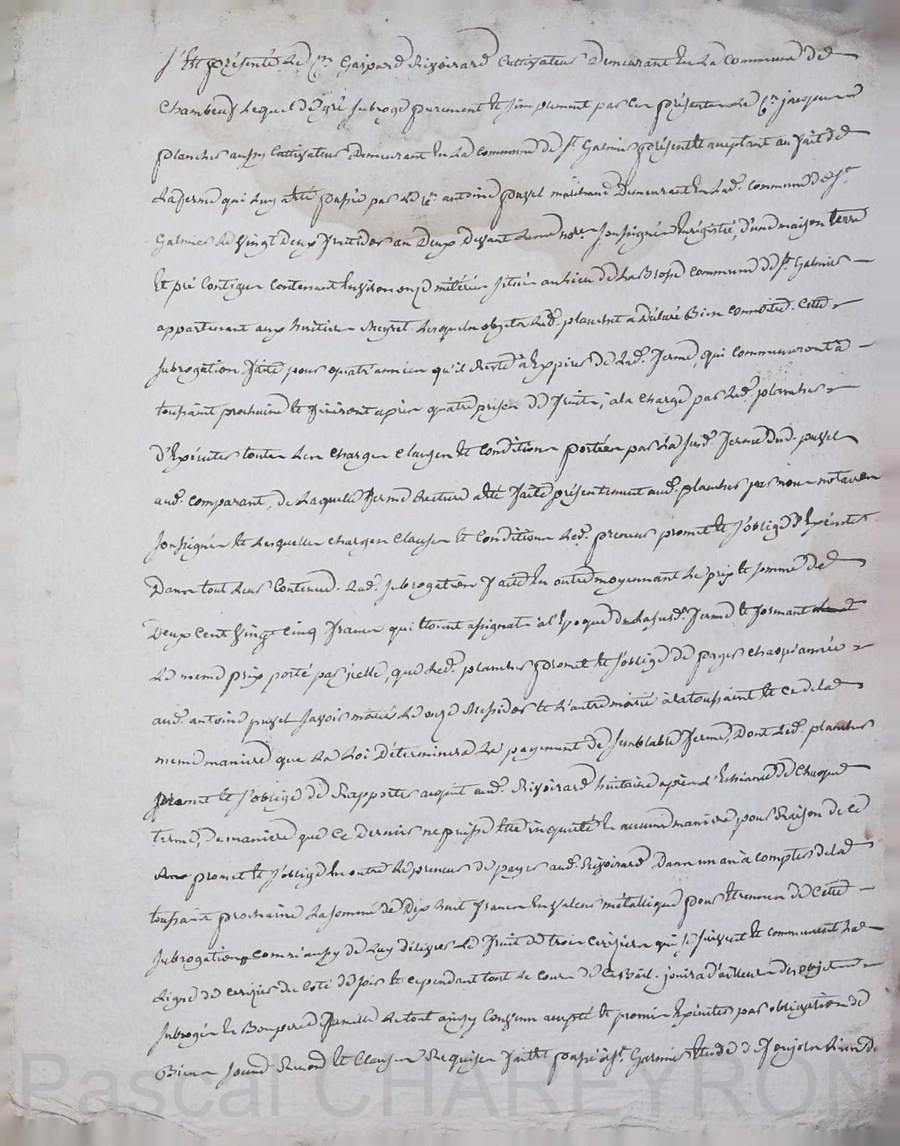 S'est présenté le Cn Gaspard Rivoirard Cultivateur Demeurant En La Commune de
Chambeuf Lequel de gré subroge purement et simplement par ces présentes Le Cn jacques
plancher aussy Cultivateur Demeurant En La Commune de St Galmier présent et aceptant au fait de
La ferme qui Luy a été passée par Le Cn antoine puzel marchand Demeurant En Lad. Commune de St
Galmier Le vingt deux fructidor an Deux devant Le me nore soussigné Enregistré, d'une maison terre
Et pré Contigus Contenant Environ onze métérées située au lieu de La Brosse Commune de St Galmier
appartenant aux heritiers Meyret Lesquels objets Led. plancher a déclaré Bien connoitre. Cette
subrogation faite pour quatre années qu'il Reste à Expirer de Lad. ferme, qui commenceront à
toussaint prochaine Et finiront après quatre prises de fruits, a la charge par Led. plancher
d'Executer toutes Les charges clauses Et Conditions portées par La susd. ferme dud. puzel
aud. comparant, de Laquelle ferme Lecture a été faite présentement aud. plancher par nous notaires
soussignés Et Lesquelles charges clauses Et Conditions Led. preneur promet Et s'oblige d'Executer
Dans tout Leur Contenu. Lad. subrogation faite En outre moyennant Le prix Et somme de
Deux Cent vingt Cinq francs qui Etoient assignats à l'Epoque de La susd. ferme Et formant
Le meme prix porté par icelle, que Led. plancher promet Et s'oblige de payer chaque année
aud. antoine puzel savoir moitié Le onze Messidor Et L'autre moitié à La toussaint Et ce de la
meme maniere que La Loi Déterminera Le payement de semblable ferme, Dont Led. plancher
promet Et s'oblige de Rapporter acquit aud. Rivoirard huitaine après L'Echeance de chaque
terme, de maniere que Ce Dernier ne puisse Etre inquiété En aucune maniere pour Raison de ce
promet Et s'oblige En outre Le preneur de payer aud. Rivoirard Dans un an à compter de La
toussaint prochaine La somme de Dix huit francs En valeur métallique pour Etrennes de Cette
subrogation, comme aussy de Luy délivrer Le fruit de trois cerisiers qui se suivent Et commencent La
Ligne de cerisiers du Coté de soir Et cependant tout Le cours de Ce Bail. jouira d'ailleurs des objets
subrogés En Bon pere de famille Le tout ainsy Convenu accepté Et promis Executer par obligation de
Biens soumis Renon. Et Clauses Requises fait Et passé à St Galmier Etude
Pascal CHAREYRON